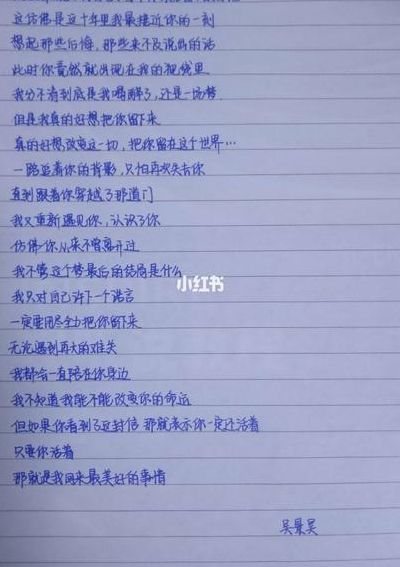 这仿佛是这十年里我最接近你的一刻
想起那些后悔，那些来不及说出的话
此时你竟然就出现在我的视线里
我分不清到底是我喝醉了，还是一场梦
但是我真的好想把你留下来
真的好想改变这一切，把你留在这个世界…
一路追着你的背影，只怕再次失去你
直到跟着你穿越了那道门
我又重新遇见你，认识了你
仿佛你从来不曾离开过
我不管这个梦最后的结局是什么
小红书
我只对自己许下一个诺言
一定要用尽全力把你留下来
无论遇到再大的难关
我都会一直陪在你身边
我不知道我能不能改变你的命运
但如果你看到了这封信 那就表示你一定还活着
只要你活着
那就是我回来最美好的事情
吴景昊